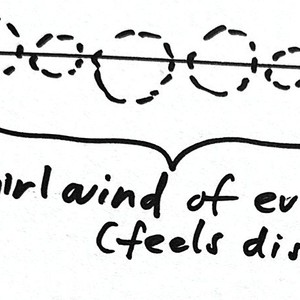 irlwind of ev
(feels dis